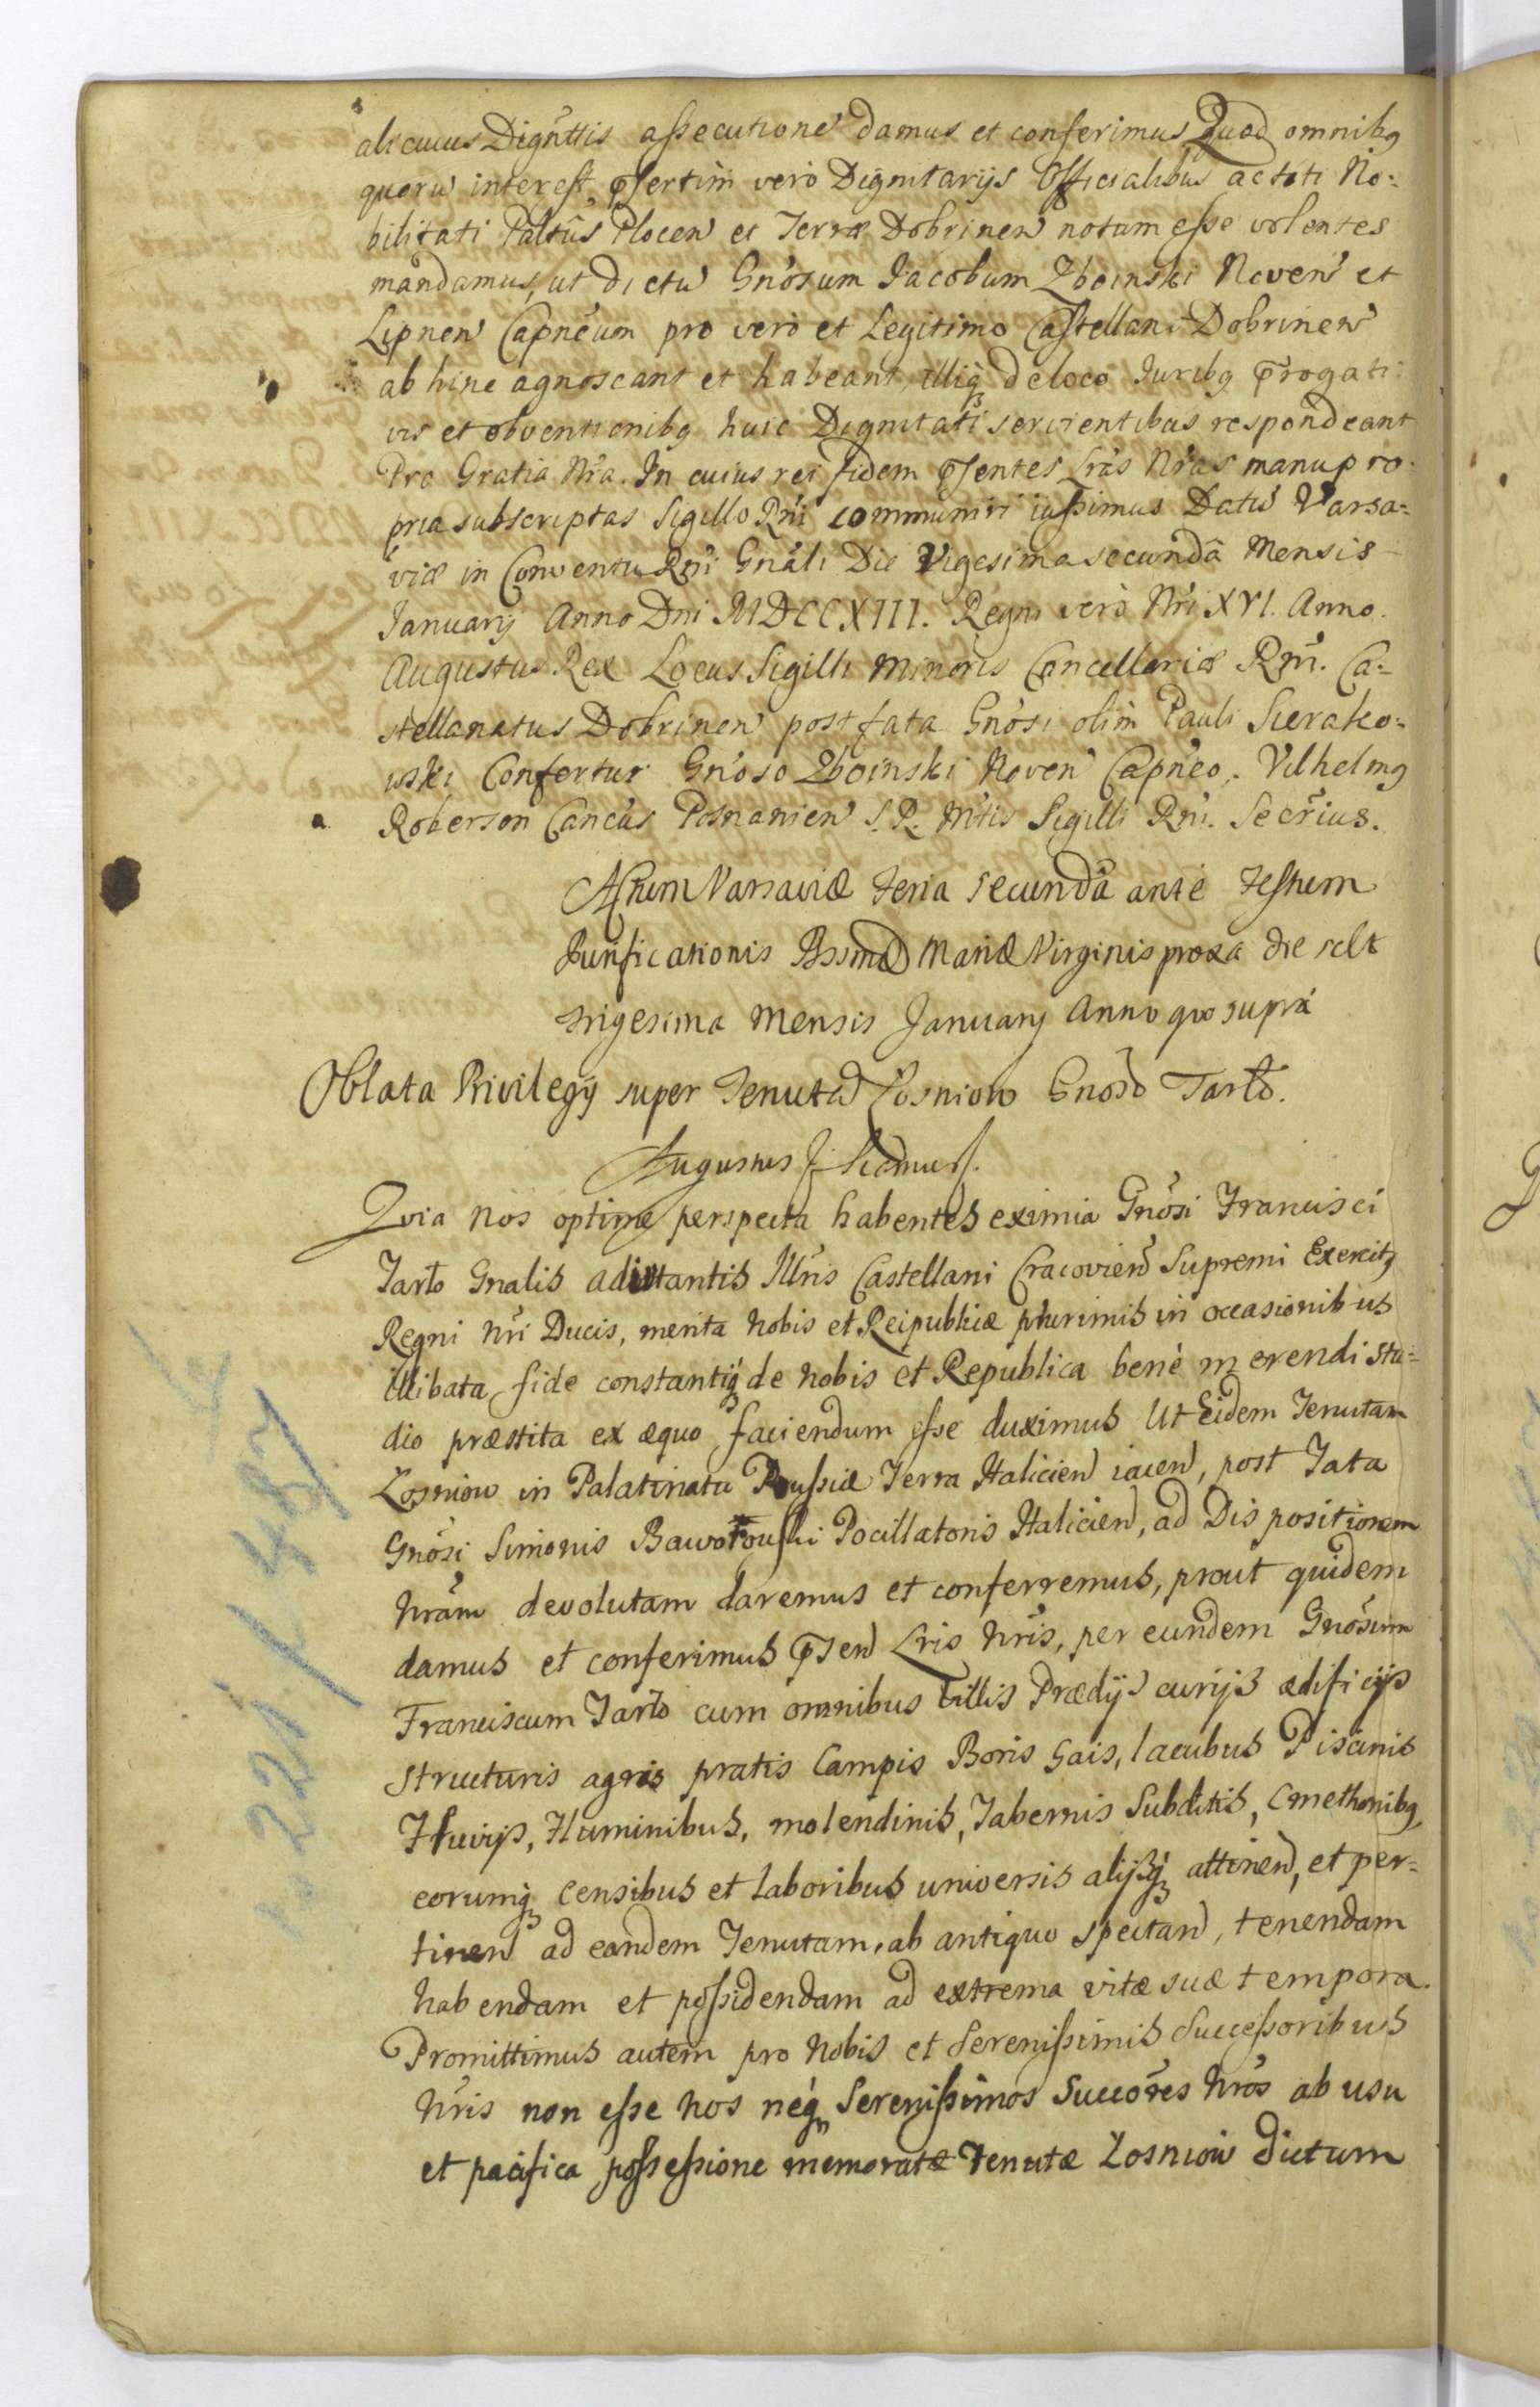 alicuius Dignttis assecutione damus et conferimus Quod omnibq
quoru interest psertim vero Dignitarijs Officialibus ac toti No:
bilitati Paltus Plocen et Terræ Dobrinen notum esse volentes
mandamus, ut dictu Gnosum Jacobum Zboinski Noven et
Lipnen Capneum pro vero et Legitimo Castellano Dobrinen
ab hinc agnoscant et habeant, illiq de loco Juribq Progati:
vis et obventionibq huic Dignitati servientibus respondeant
Pro Gratia Nra. In cuius rei fidem psentes Lras Nras manu pro:
pria subscriptas Sigillo Rni communiri iussimus Datu Varsa:
viæ in Conventu Rni Gnali Die Vigesima secunda Mensis
January Anno Dni MDCCXIII. Regni vero Nri XVI. Anno.
Augustus Rex Locus Sigilli Minoris Cancellariæ Rni. Ca:
stellanatus Dobrinen post fata Gnosi olim Pauli Sierako:
wski Confertur Gnoso Zboinski Noven Capneo. Vilhelmq
Roberson Cancus Posnanien S. R. Mtis Sigilli Rni. Secrius.
Actum Varsaviæ Feria Secunda ante Festum
Purificationis Bssmæ Mariæ Virginis proxa die sclt
trigesima Mensis January Anno quo supra
Oblata Privilegij super Tenuta Zosniow Gnoso Tarło.
Augustus
Quia Nos optime perspecta habentes eximia Gnosi Francisci
Tarło Gnalis adiutantis Illris Castellani Cracovien Supremi Exercitq
Regni Nri Ducis, merita Nobis et Reipublicæ plurimis in occasionibus
illibata fide constantiq de Nobis et Republica bene merendi stu:
dio præstita ex æquo faciendum esse duximus Ut Eidem Tenutam
Zosniow in Palatinatu Russiæ Terra Halicien iacen, post Fata
Gnosi Simonis Baworowski Pocillatoris Halicien, ad Dispositionem
Nram devolutam daremus et conferremus, prout quidem
damus et conferimus psen Lris Nris, per eundem Gnosum
Franciscum Tarło cum omnibus Villis Prædijs curijs ædificijs
structuris agris pratis Campis Boris Gais, lacubus Piscinis
Fluvijs, Fluminibus, molendinis, Tabernis Subditis, Cmethonibq
eorumq censibus et laboribus universis alijsq attinen, et per:
tinen ad eandem Tenutam, ab antiquo spectan, tenendam
habendam et possidendam ad extrema vitæ suæ tempora.
Promittimus autem pro Nobis et Serenissimis Successoribus
Nris non esse Nos neq Serenissimos Succores Nros ab usu
et pacifica possessione memoratæ Tenutæ Zosniow dictum
221/487